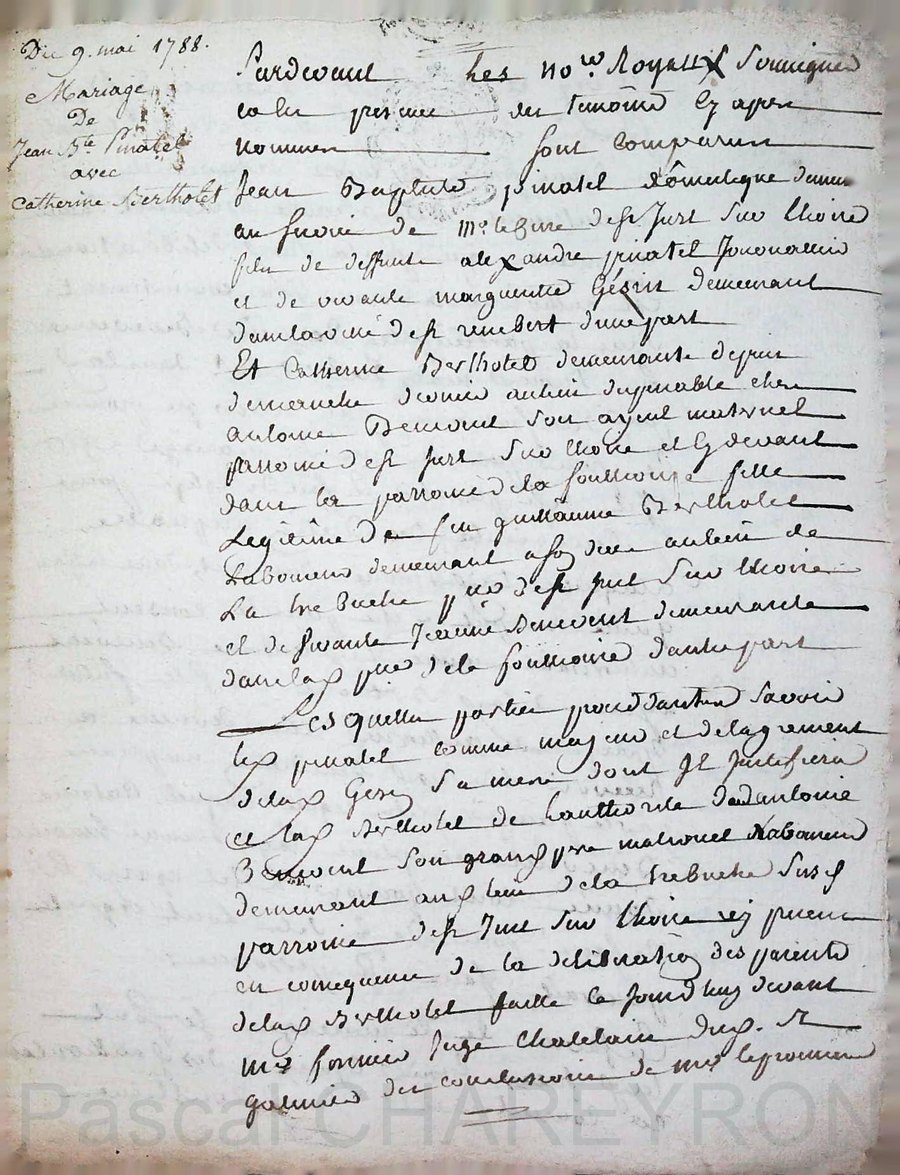 Du 9. mai 1788.
Mariage
De
Jean Bte Pinatel
avec
Catherine Bertholet
Pardevant les nores Royaux soussignés
et en presence des temoins cy apres
nommés sont comparus
Jean Baptiste pinatel domestique demeurant
au service de de st Just sur Loire
fils de deffunt alexandre pinatel journallier
et de vivante marguerite Gésin demeurant
dans la ville de st rambert d'une part
Et Catherine Bertholet demeurante depuis
dimanche dernier au lieu de chez
antoine Benevent son ayeul maternel
parroisse de st just sur Loire et cy devant
dans la parroisse de la fouillouse fille
Legitime de feu guillaume Bertholet
Laboureur demeurant au lieu de
La trebuche psse de st just sur Loire
et de vivante Benevent demeurante
dans lad psse de la fouillouse d'autre part
Lesquelles parties procedantes savoir
led pinatel comme majeur et de lagrement
de lad Gesin sa mere dont Il justifiera
et lad Bertholet de lauthorité dud antoine
Benevent son grand pere maternel Laboureur
demeurant aud lieu de la trebuche susd
parroisse de st Just sur Loire icy present
en consequence de la deliberation des parents
de lad Bertholet faitte ce jourdhuy devant
Me fornier juge Chatelain dud. st
galmier des conclusions de me le procureur
Pascal CHAREYRON